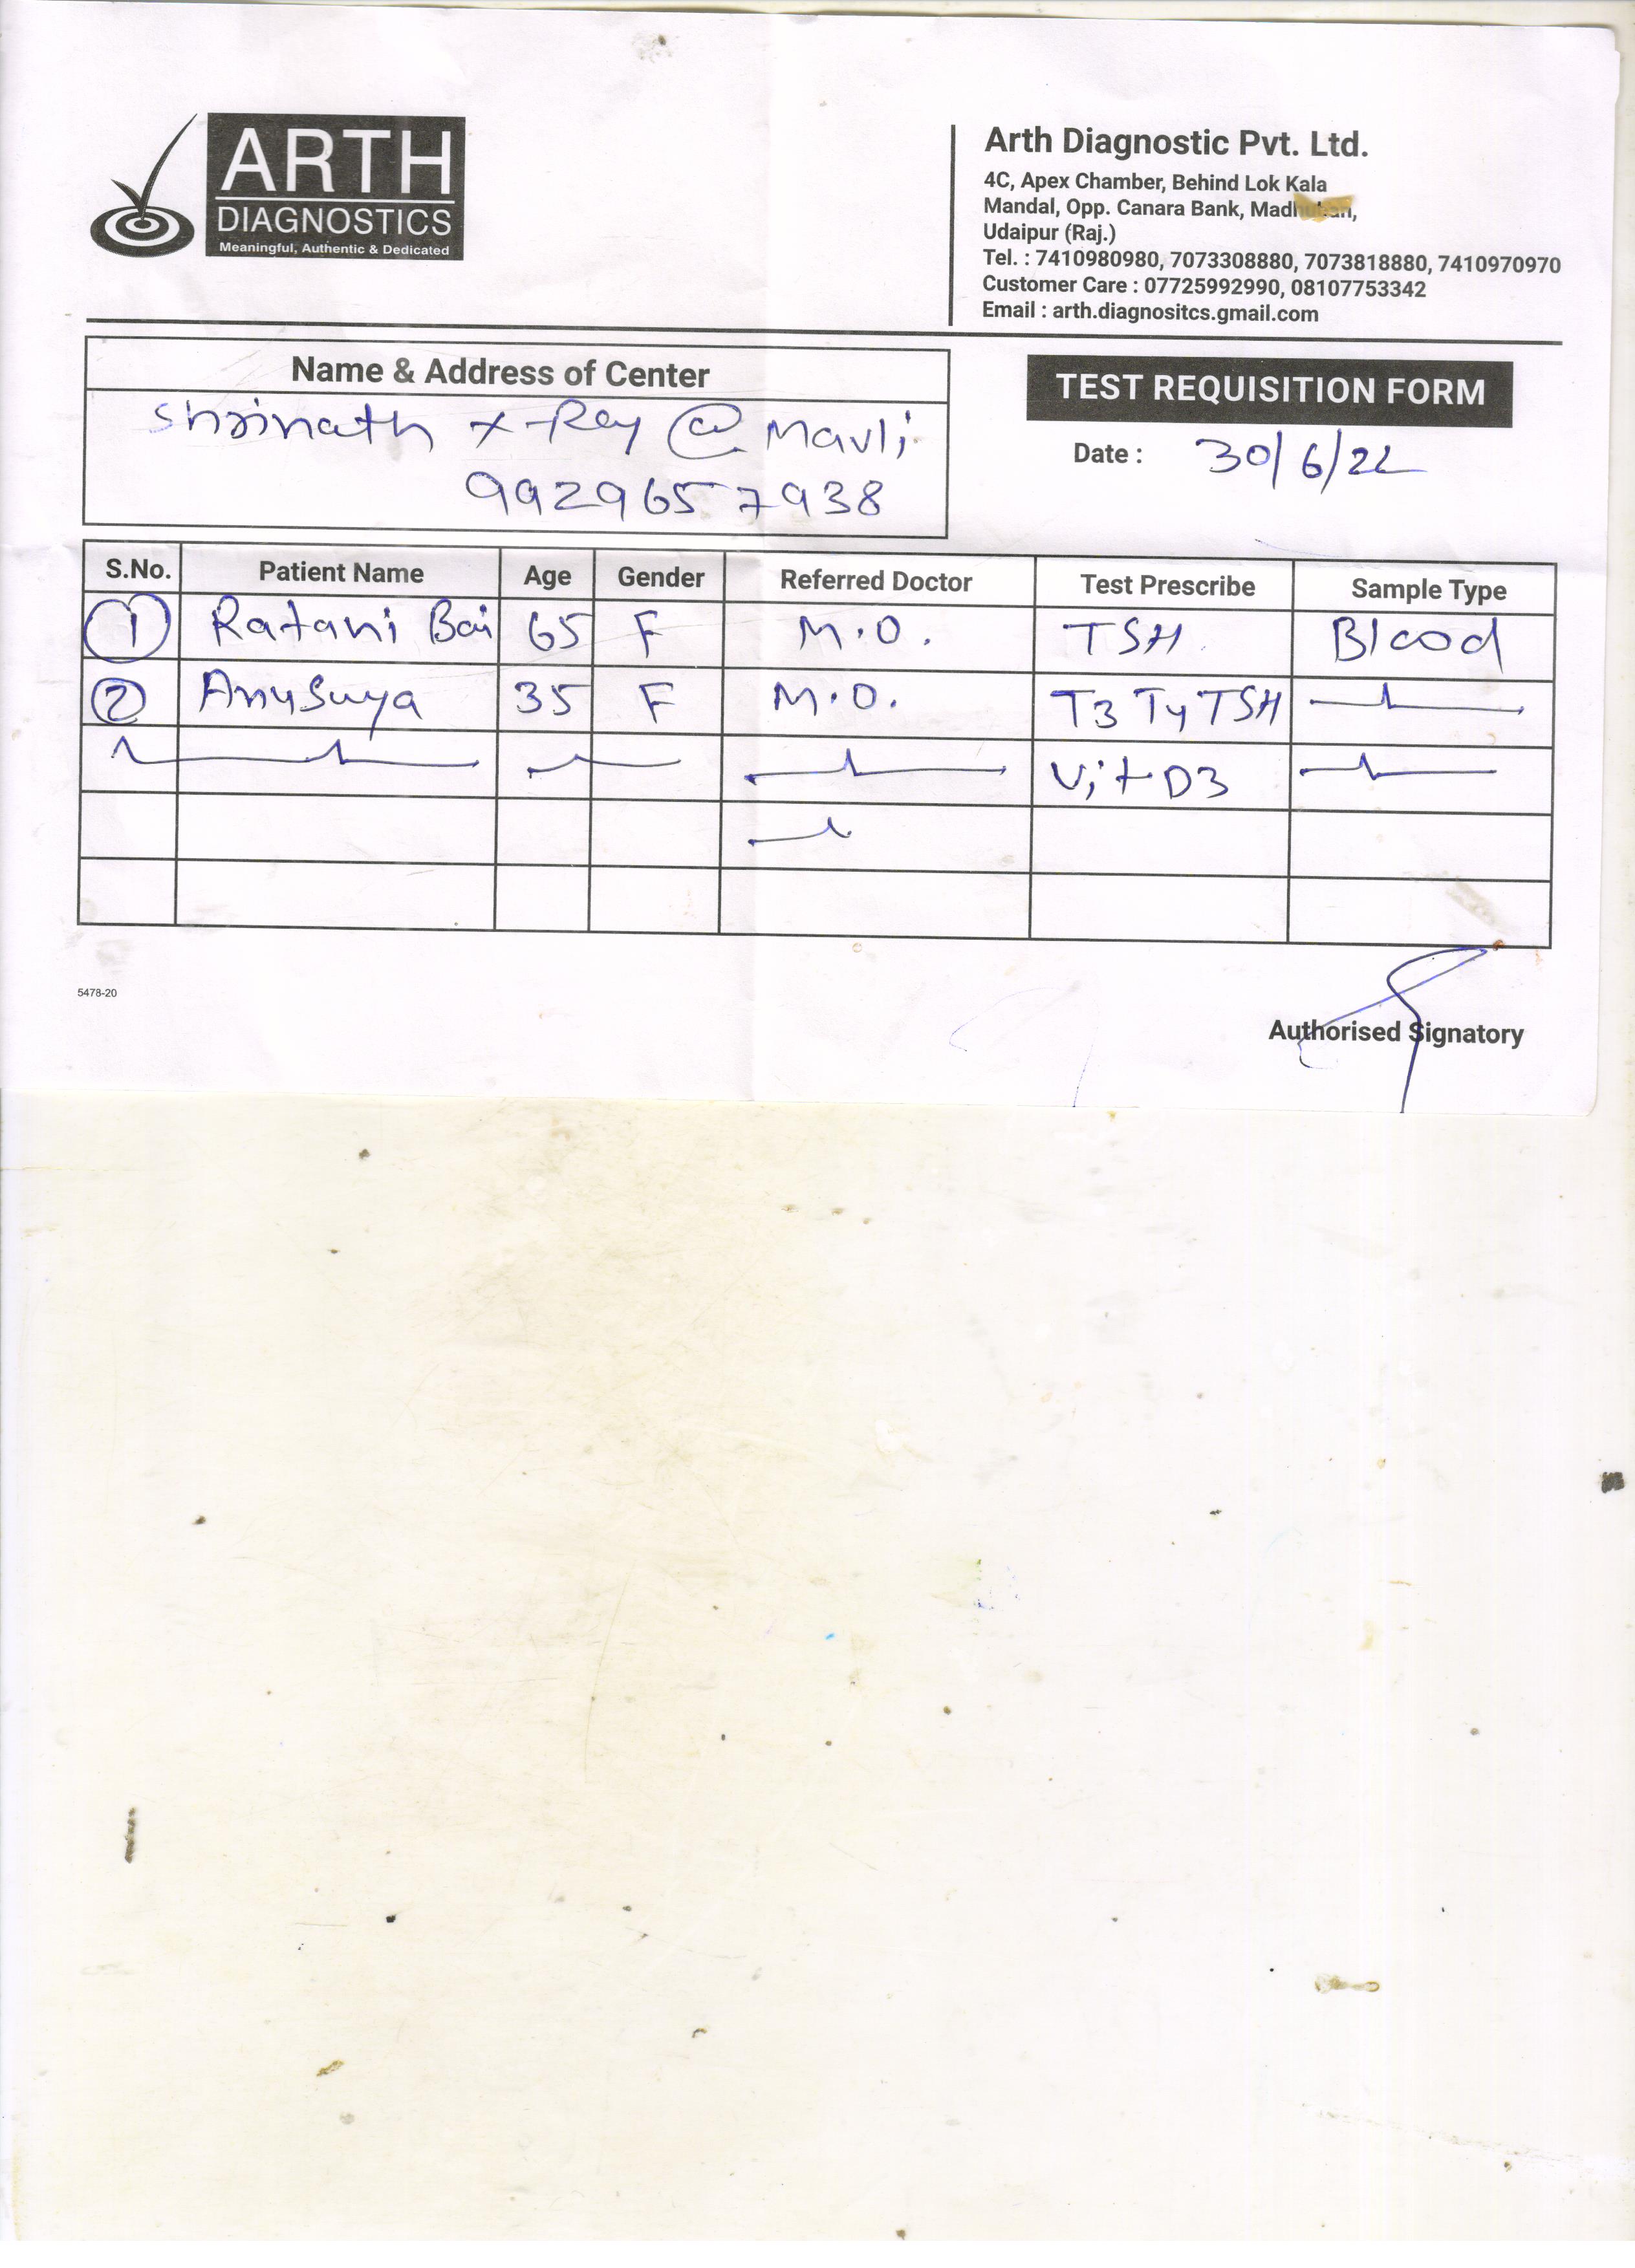 ARTH
DIAGNOSTICS
Meaningful, Authentic & Dedicated
Arth Diagnostic Pvt. Ltd.
4C, Apex Chamber, Behind Lok Kala
Mandal, Opp. Canara Bank, Madhuban,
Udaipur (Raj.)
Tel. : 7410980980, 7073308880, 7073818880, 7410970970
Customer Care : 07725992990, 08107753342
Email : arth.diagnositcs.gmail.com
Name & Address of Center
Shrinath X-Ray @ Mavli
9929657938
TEST REQUISITION FORM
Date : 30/6/22
S.No. Patient Name Age Gender Referred Doctor Test Prescribe Sample Type
1 Ratani Bai 65 F M.O. TSH Blood
2 Anusuya 35 F M.O. T3 T4 TSH
Vit D3
5478-20
Authorised Signatory